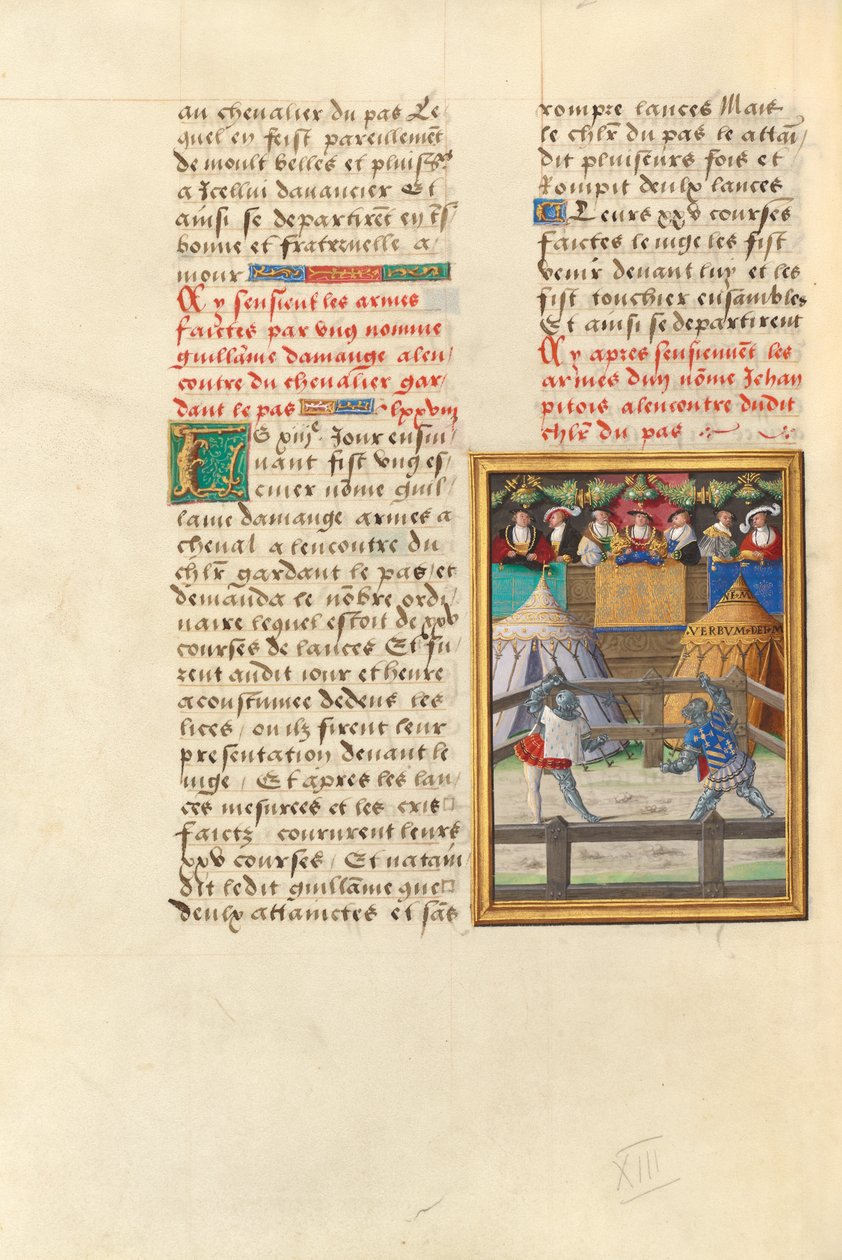 au chevalier du pas Le
quel en feist pareillemēt
de moult belles et pluiss̄
a Icellui dauancier Et
ainsi se departirēt en
bonne et fraternelle a
mour
Cy sensieut les armes
faictes par vng nomme
guillāme damange alen/
contre du chevalier gar/
dant le pas lxxviij
Le xiijᵉ Jour ensui/
uant fist vng es/
cuier nōme guil/
lame damange armes a
cheval a lencontre du
chl̄r gardant le pas, et
demanda le nōbre ordi/
naire lequel estoit de xxv
courses de lances Et fu/
rent audit iour et heure
acoustumee dedens les
lices, ou ilz firent leur
presentation deuant le
iuge, Et apres les lan/
ces mesurees et les cris
faictz coururent leurs
xxv courses, Et nataīn/
dit ledit guillāme que
deulx attainctes et sās
rompre lances Mais
le chl̄r du pas le attaī/
dit pluiseurs fois et
Rompit deulx lances
Leurs xxv courses
faictes le iuge les fist
venir deuant luy et les
fist touchier ensambles
Et ainsi se departirent
Cy apres sensieuuēt les
armes dun nōme Jehan
pitois alencontre dudit
chl̄r du pas
NE·M
VERBVM·DEI·M
XIII